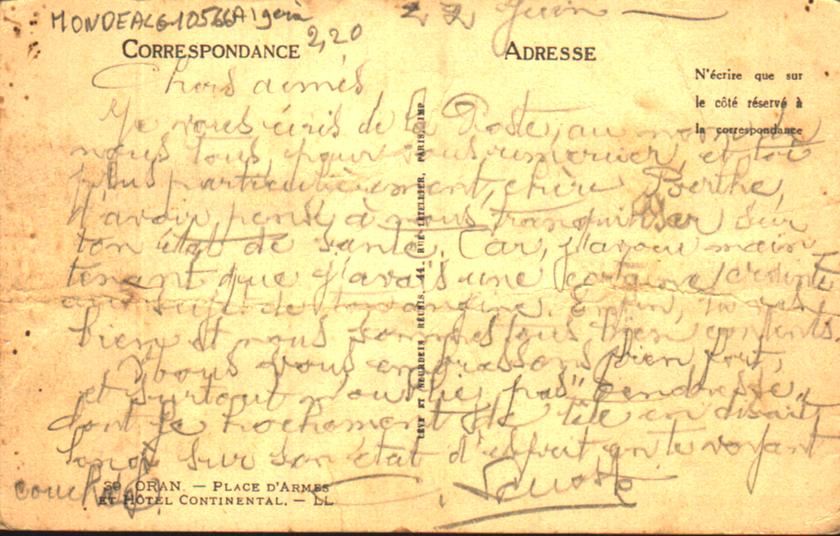 MONDEAL610566Algeria
2,20
22 Juin
CORRESPONDANCE
ADRESSE
N'écrire que sur
le côté réservé à
la correspondance
Chers aimés
Je vous écris de la Poste, au nom de
nous tous, pour vous remercier, et toi
plus particulièrement, chère Berthe,
d'avoir pensé à nous tranquilliser sur
ton état de santé. Car, j'avoue main
tenant que j'avais une certaine crainte
au sujet de
bien et nous sommes tous bien contents.
Nous vous embrassons bien fort,
et surtout n'oubliez pas "Tendresse"
dont le hochement de tête en disait
long sur son état d'esprit en te voyant
couchée
LÉVY ET NEURDEIN RÉUNIS, 44, RUE LETELLIER, PARIS, IMP.
39 ORAN. — PLACE D'ARMES
ET HÔTEL CONTINENTAL. — LL